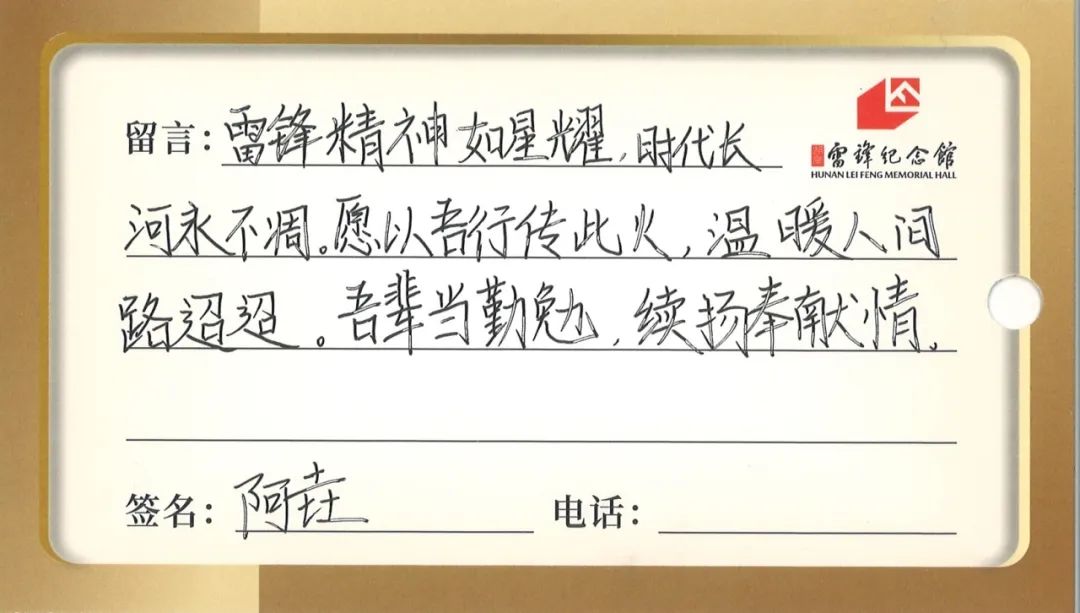 留言：雷锋精神如星耀，时代长
雷锋纪念館
HUNAN LEI FENG MEMORIAL HALL
河永不凋。愿以吾行传此火，温暖人间
路迢迢。吾辈当勤勉，续扬奉献情。
签名：阿垚
电话：